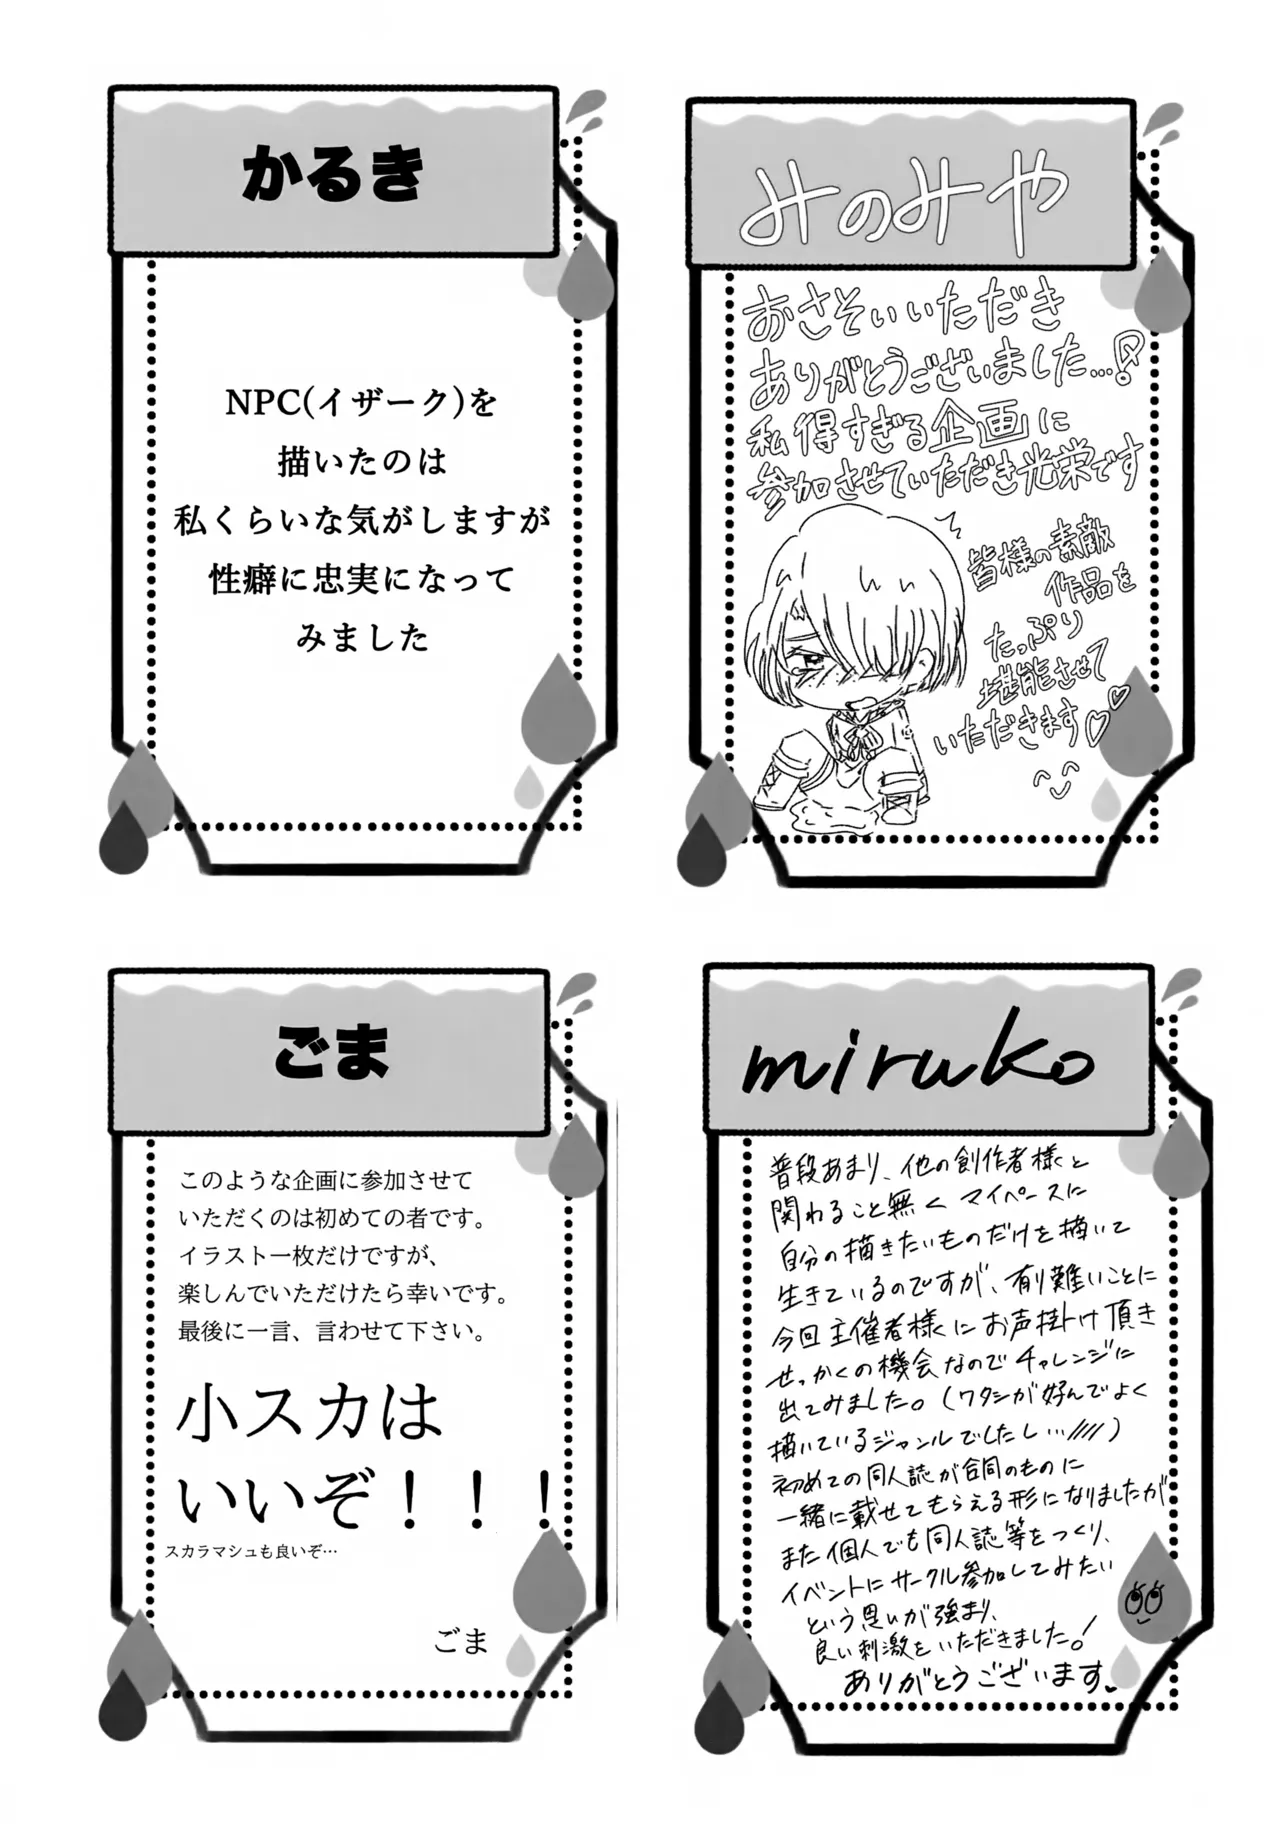 かるき
NPC(イザーク)を
描いたのは
私くらいな気がしますが
性癖に忠実になって
みました
みのみや
おさそいいただき
ありがとうございました…!?
私得すぎる企画に
参加させていただき光栄です
皆様の素敵
作品を
たっぷり
堪能させて
いただきます♡♡
ごま
このような企画に参加させて
いただくのは初めての者です。
イラスト一枚だけですが、
楽しんでいただけたら幸いです。
最後に一言、言わせて下さい。
小スカは
いいぞ！！！
スカラマシュも良いぞ…
ごま
miruko
普段あまり、他の創作者様と
関わること無く マイペースに
自分の描きたいものだけを描いて
生きているのですが、有り難いことに
今回主催者様にお声掛け頂き
せっかくの機会なのでチャレンジに
出てみました。(ワタシが好んでよく
描いているジャンルでしたし…/////)
初めての同人誌が合同のものに
一緒に載せてもらえる形になりましたが
また個人でも同人誌等をつくり、
イベントにサークル参加してみたい
という思いが強まり、
良い刺激をいただきました!
ありがとうございます